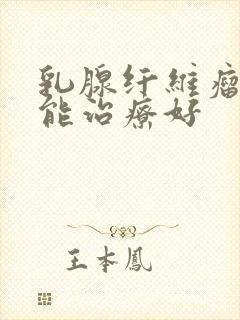 乳腺纤維瘤
能治療好
王本鳳